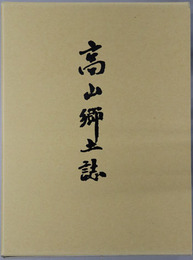 高山郷土誌